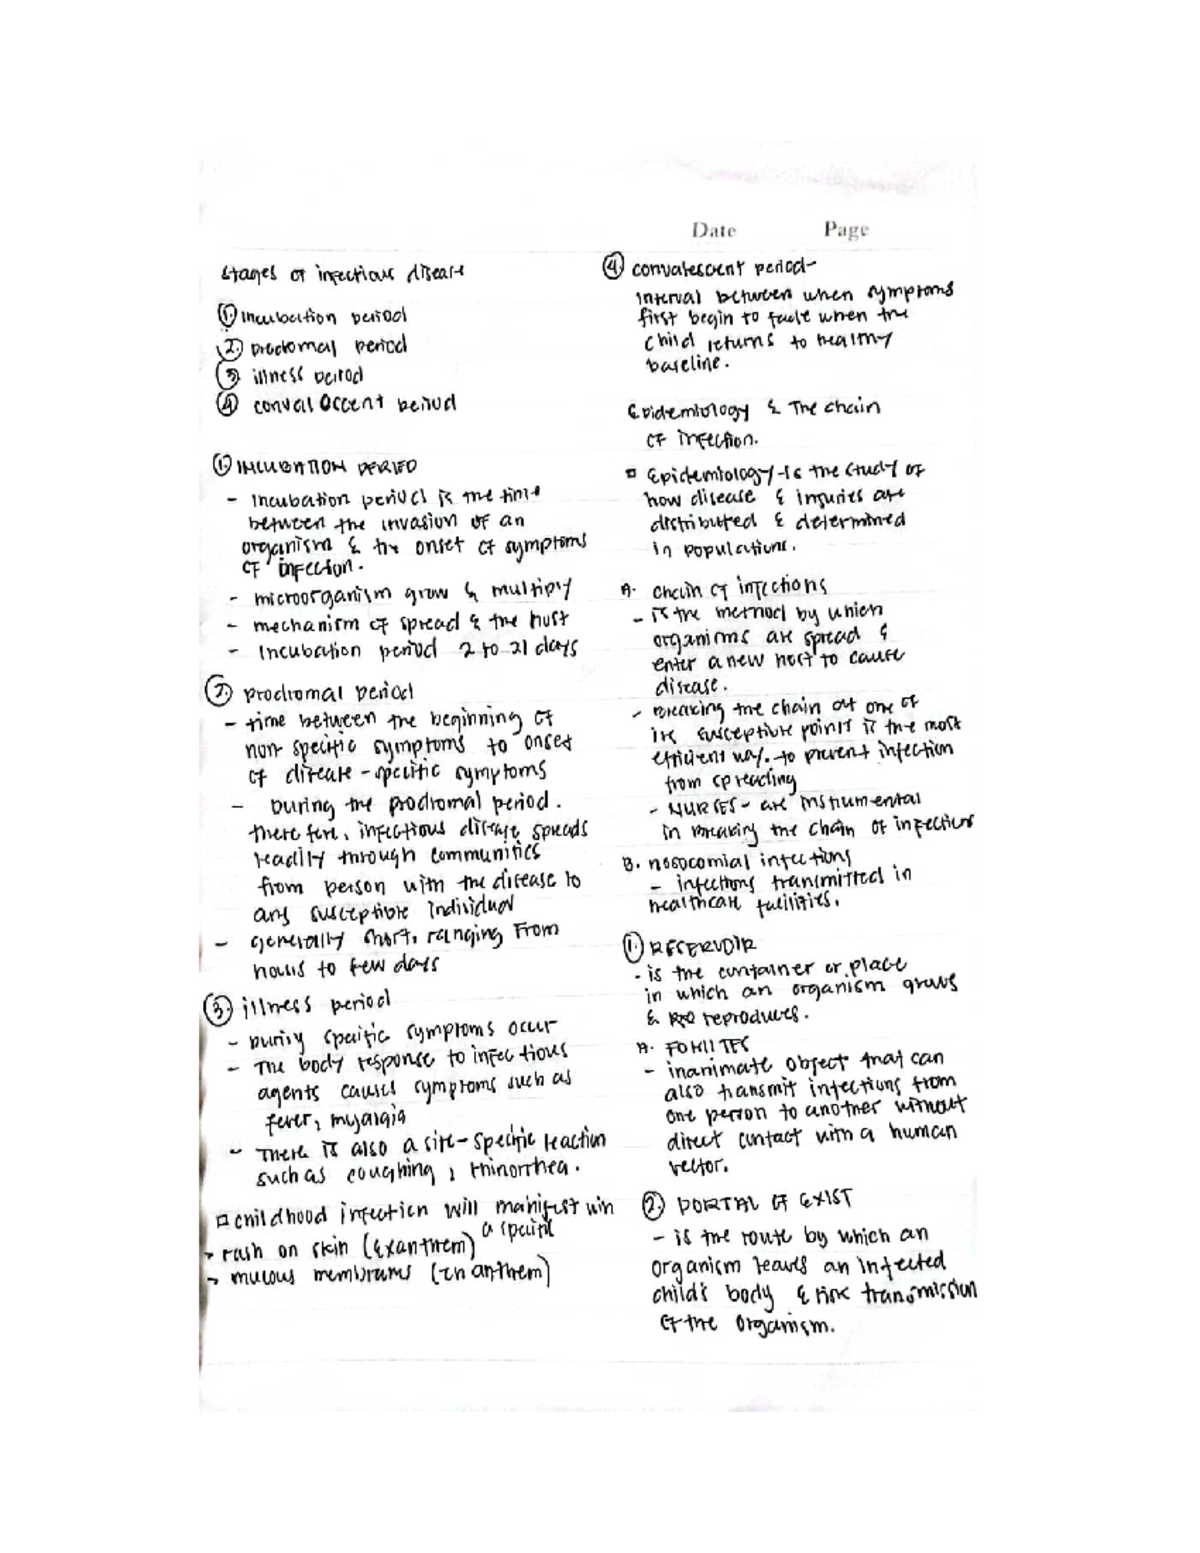 Date Page
stages of infectious disease
① Incubation period
② prodromal period
③ illness period
④ convalOccent period
① INCUBATION PERIOD
- Incubation period is the time
between the invasion of an
organism & the onset of symptoms
of infection.
- microorganism grow & multiply
- mechanism of spread & the host
- Incubation period 2 to 21 days
② prodromal period
- time between the beginning of
non specific symptoms to onset
of disease-specific symptoms
- During the prodromal period.
therefore, infectious disease spreads
readily through communities
from person with the disease to
any susceptible individual
- generally short, ranging from
hours to few days
③ illness period
- During specific symptoms occur
- The body response to infectious
agents causes symptoms such as
fever, myalgia
- There is also a site-specific reaction
such as coughing, rhinorrhea.
□ childhood infection will manifest with
a specific
→ rash on skin (exanthem)
→ mucous membranes (enanthem)
④ convalescent period-
Interval between when symptoms
first begin to fade when the
child returns to healthy
baseline.
Epidemiology & The chain
of infection.
□ Epidemiology-is the study of
how disease & injuries are
distributed & determined
in populations.
A. chain of infections
- is the method by which
organisms are spread &
enter a new host to cause
disease.
- Breaking the chain at one of
its susceptible points is the most
efficient way. to prevent infection
from spreading
- NURSES- are instrumental
in breaking the chain of infection
B. nosocomial infections
- infections transmitted in
healthcare facilities.
① RESERVOIR
- is the container or place
in which an organism grows
& reproduces.
A. FOMITES
- inanimate object that can
also transmit infections from
one person to another without
direct contact with a human
vector.
② PORTAL OF EXIST
- is the route by which an
organism leaves an infected
child's body & risk transmission
of the organism.